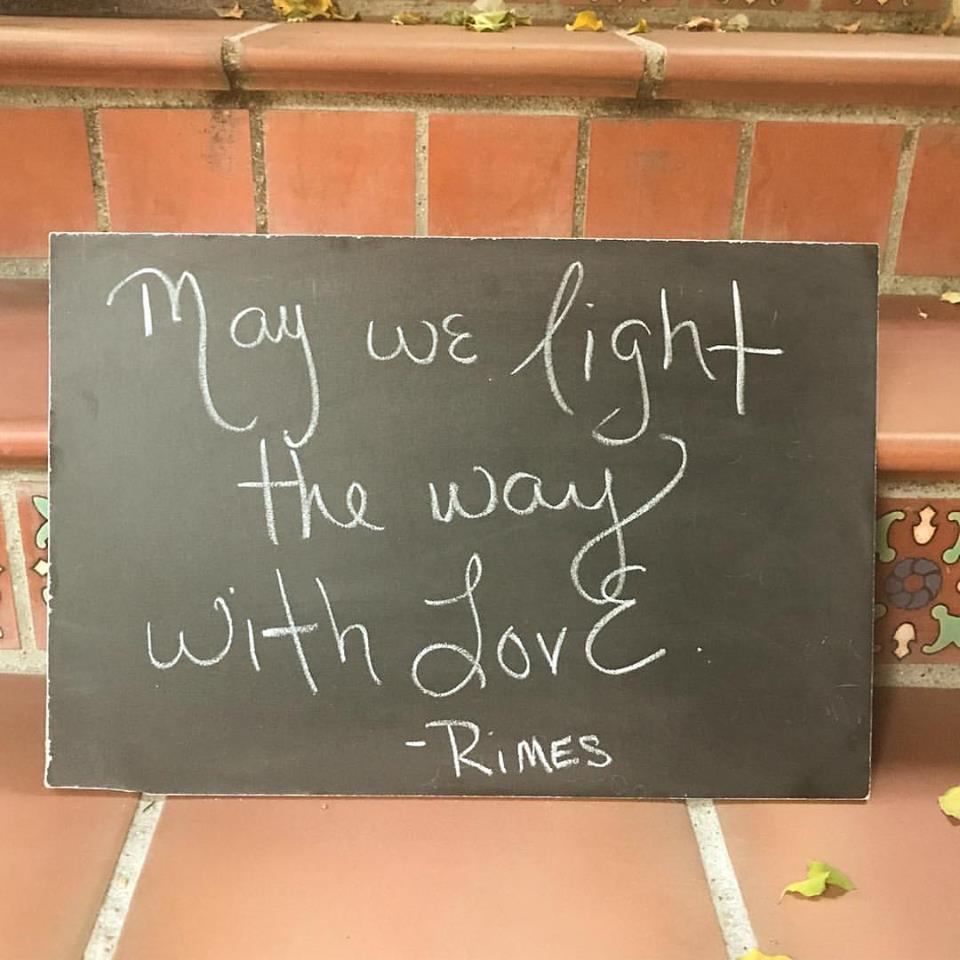 May we light
the way
with Love.
-RIMES